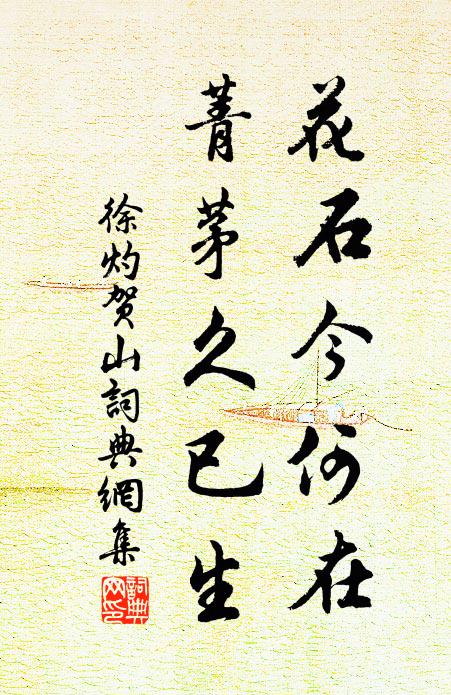 花石今何在
菁茅久已生
徐灼賀山詞典網集
詞典
網印